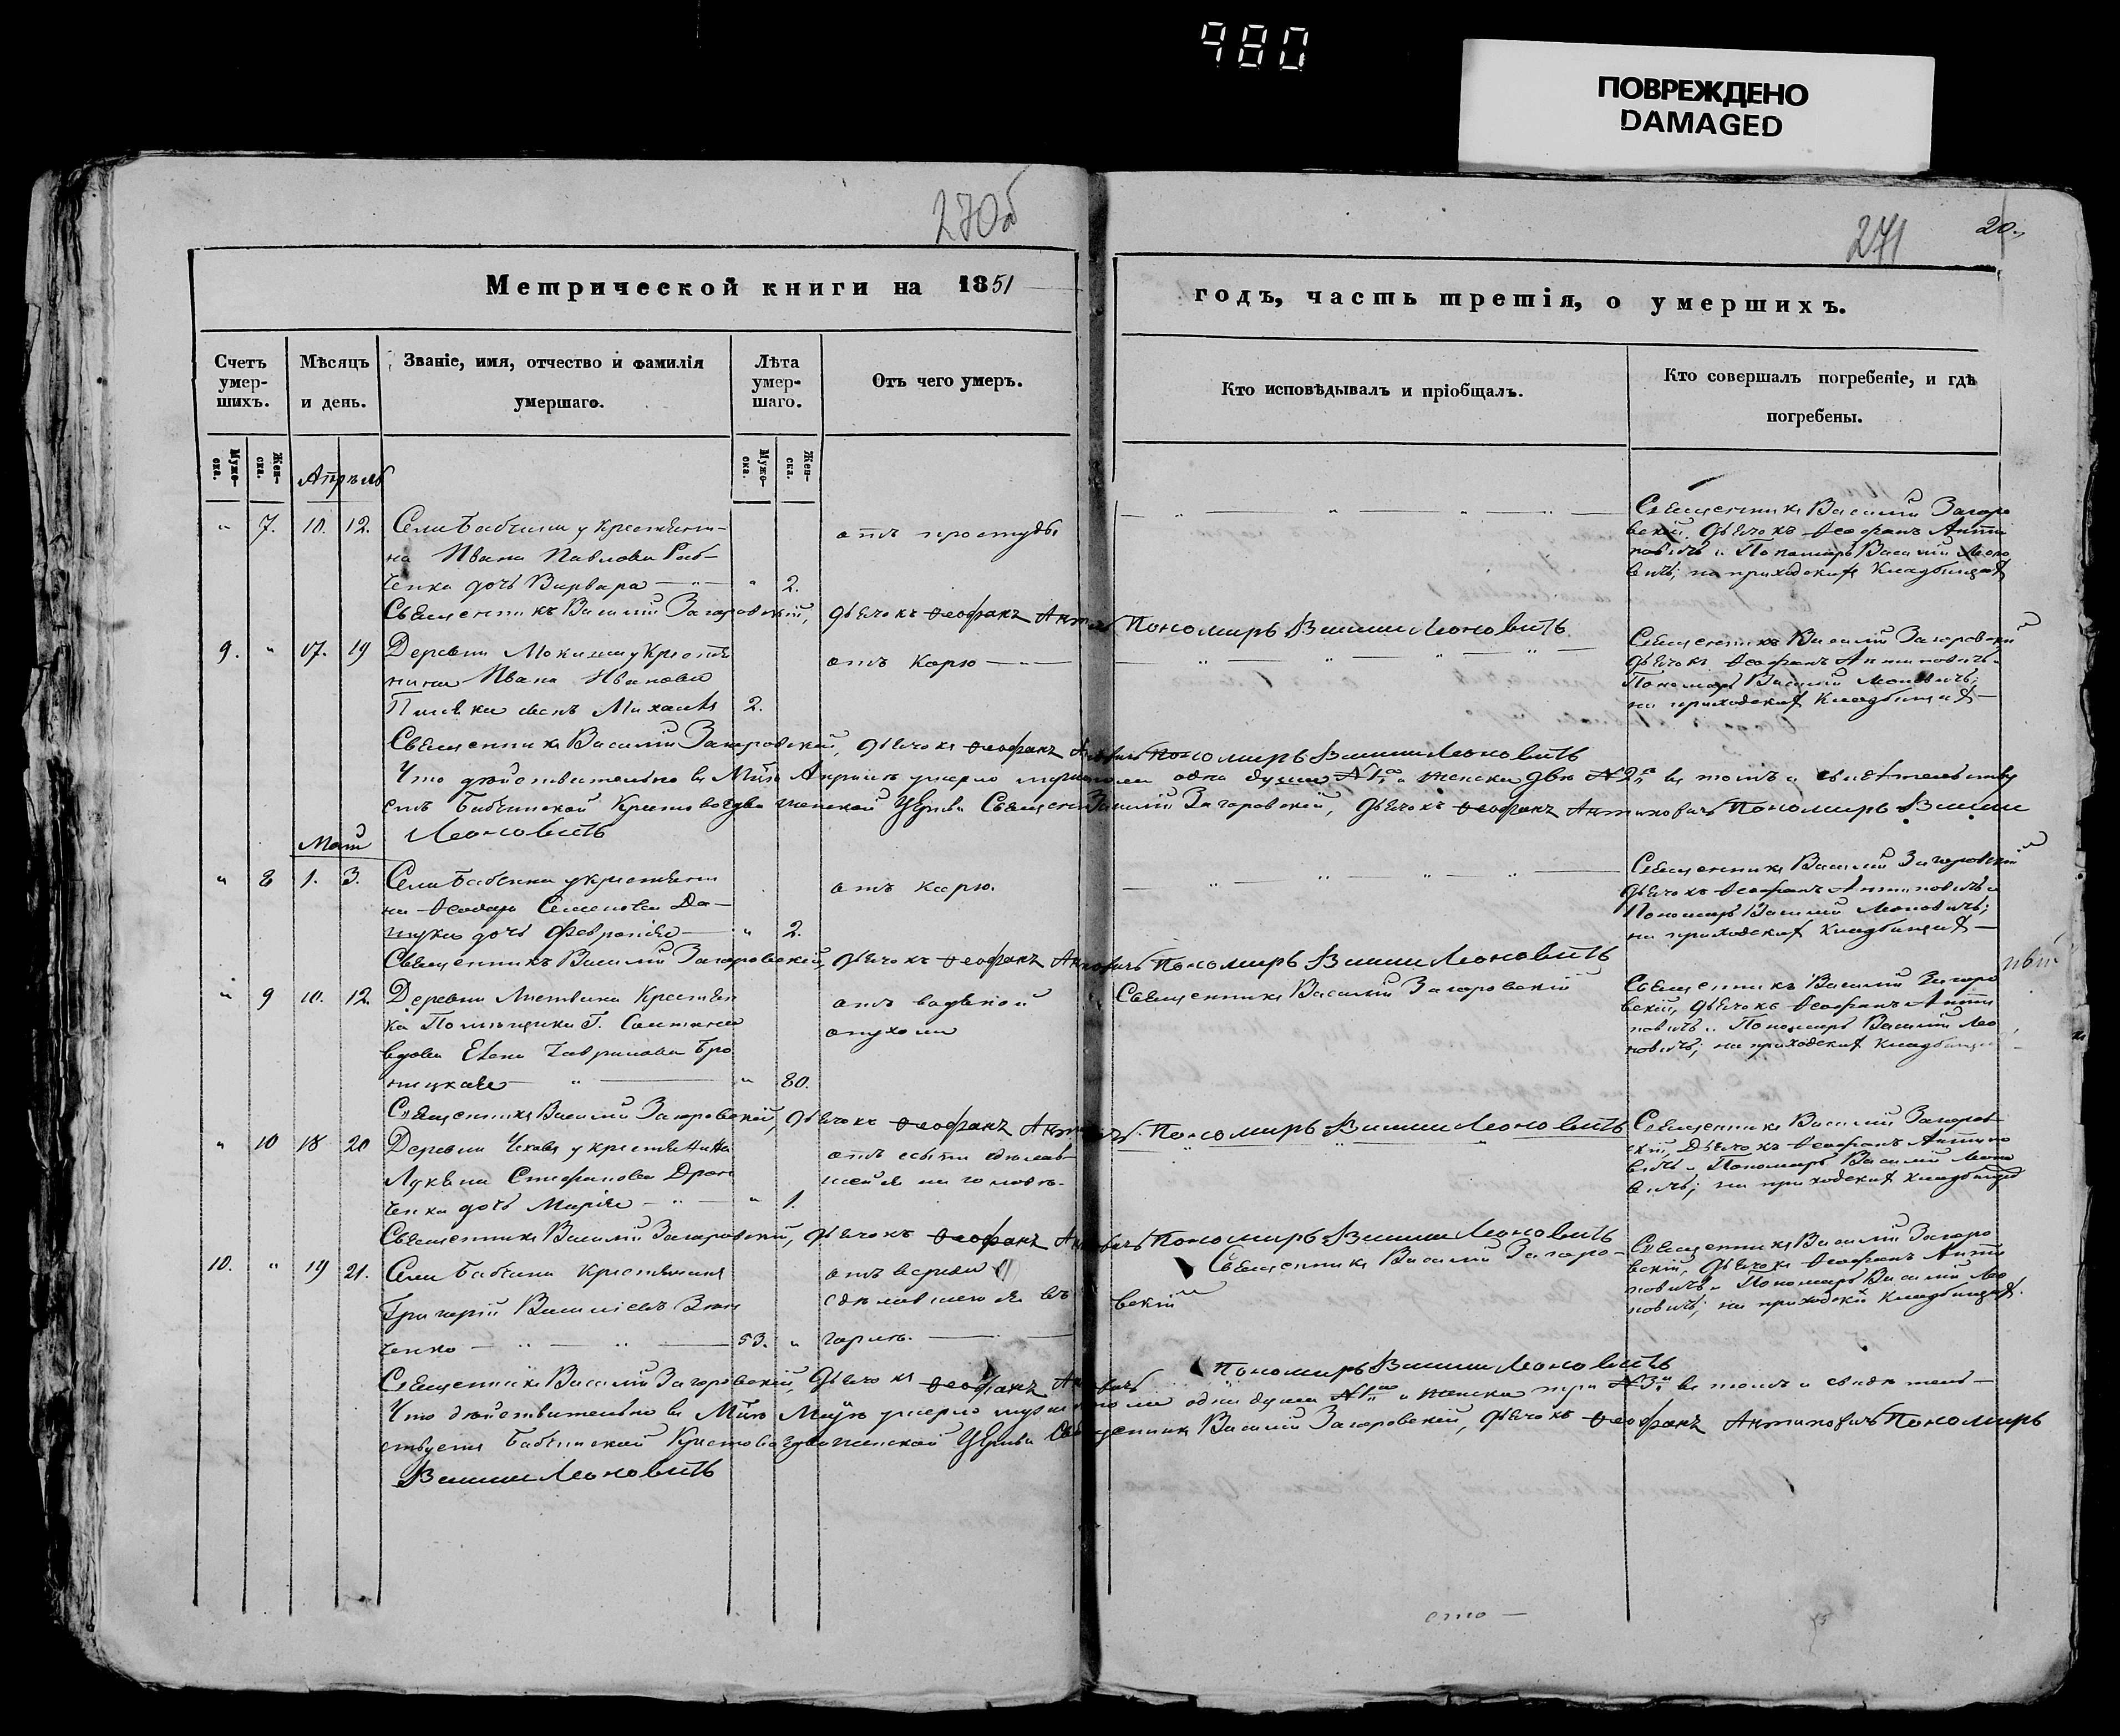 980
ПОВРЕЖДЕНО
DAMAGED
270б
271
20.
Метрической книги на 1851
годъ, часть третія, о умершихъ.
Счетъ умер-шихъ.
Мѣсяцъ и день.
Званіе, имя, отчество и фамилія умершаго.
Лѣта умер-шаго.
Отъ чего умеръ.
Кто исповѣдывалъ и пріобщалъ.
Кто совершалъ погребеніе, и гдѣ погребены.
Мужс-ска.
Жен-ска.
Мужс-ска.
Жен-ска.
Апрель
" 7. 10. 12. Села Бабчина у крестьяни-
на Ивана Павлова Раб-
ченка дочь Варвара " 2.
отъ простуды
Священникъ Василій Загоро
вскій, Дьячокъ Ѳеофанъ Анти
повичъ и Пономарь Василій Леоно
вичъ; на приходскомъ кладбищѣ
Священникъ Василій Загоровскій, Дьячокъ Ѳеофанъ Антиповичъ Пономарь Василій Леоновичъ
9. " 17. 19 Деревни у Крестья
нина Ивана Иванова
сынъ Михаилъ 2.
отъ корю
Священникъ Василій Загоровскій
Дьячокъ Ѳеофанъ Антиповичъ
Пономарь Василій Леоновичъ;
на приходскомъ кладбищѣ
Священникъ Василій Загоровскій, Дьячокъ Ѳеофанъ Антиповичъ Пономарь Василій Леоновичъ
Что дѣйствительно въ М-цѣ Апрѣлѣ умерло мужеска пола одна душа №1 и женска двѣ №2 въ томъ и свидѣтельству
емъ Бабчинской Крестовоздвиженской Церкви Священ. Василій Загоровскій, Дьячокъ Ѳеофанъ Антиповичъ Пономарь Василій
Леоновичъ
Май
" 8 1. 3. Села Бабчина у крестьяни
на Ѳеодора Семенова Да-
щука дочь Февронія " 2.
отъ корю.
Священникъ Василій Загоровскій
Дьячокъ Ѳеофанъ Антиповичъ и
Пономарь Василій Леоновичъ;
на приходскомъ кладбищѣ
Священникъ Василій Загоровскій, Дьячокъ Ѳеофанъ Антиповичъ Пономарь Василій Леоновичъ
" 9 10. 12. Деревни Листвина Крестьян
ка Помѣщика Г.
вдова Елена Гаврилова Бро
ницкая " 80.
отъ водяной
опухоли
Священникъ Василій Загоровскій
Священникъ Василій Загоро
вскій, Дьячокъ Ѳеофанъ Анти
повичъ и Пономарь Василій Лео
новичъ; на приходскомъ кладбищѣ
Священникъ Василій Загоровскій, Дьячокъ Ѳеофанъ Антиповичъ Пономарь Василій Леоновичъ
" 10 18 20 Деревни Чехова у крестьянина
Лукьяна Стефанова
ченка дочь Марія " 1.
отъ сыпи сдѣлав
шейся на головѣ.
Священникъ Василій Загоров
скій, Дьячокъ Ѳеофанъ Антипо
вичъ и Пономарь Василій Леоно
вичъ; на приходскомъ кладбищѣ
Священникъ Василій Загоровскій, Дьячокъ Ѳеофанъ Антиповичъ Пономарь Василій Леоновичъ
10. " 19 21. Села Бабчина Крестьянинъ
Григорій Василіевъ
ченко 53. "
отъ вереда
сдѣлавшегося въ
горлѣ.
Священникъ Василій Загоро-
вскій
Священникъ Василій Загоро
вскій, Дьячокъ Ѳеофанъ Анти
повичъ и Пономарь Василій Лео
новичъ; на приходскомъ кладбищѣ.
Священникъ Василій Загоровскій, Дьячокъ Ѳеофанъ Антиповичъ Пономарь Василій Леоновичъ
Что дѣйствительно въ М-цѣ Маѣ умерло мужеска пола одна душа №1 и женска три №3 въ томъ и свидѣтель-
ствуемъ Бабчинской Крестовоздвиженской Церкви Священникъ Василій Загоровскій, Дьячокъ Ѳеофанъ Антиповичъ Пономарь
Василій Леоновичъ